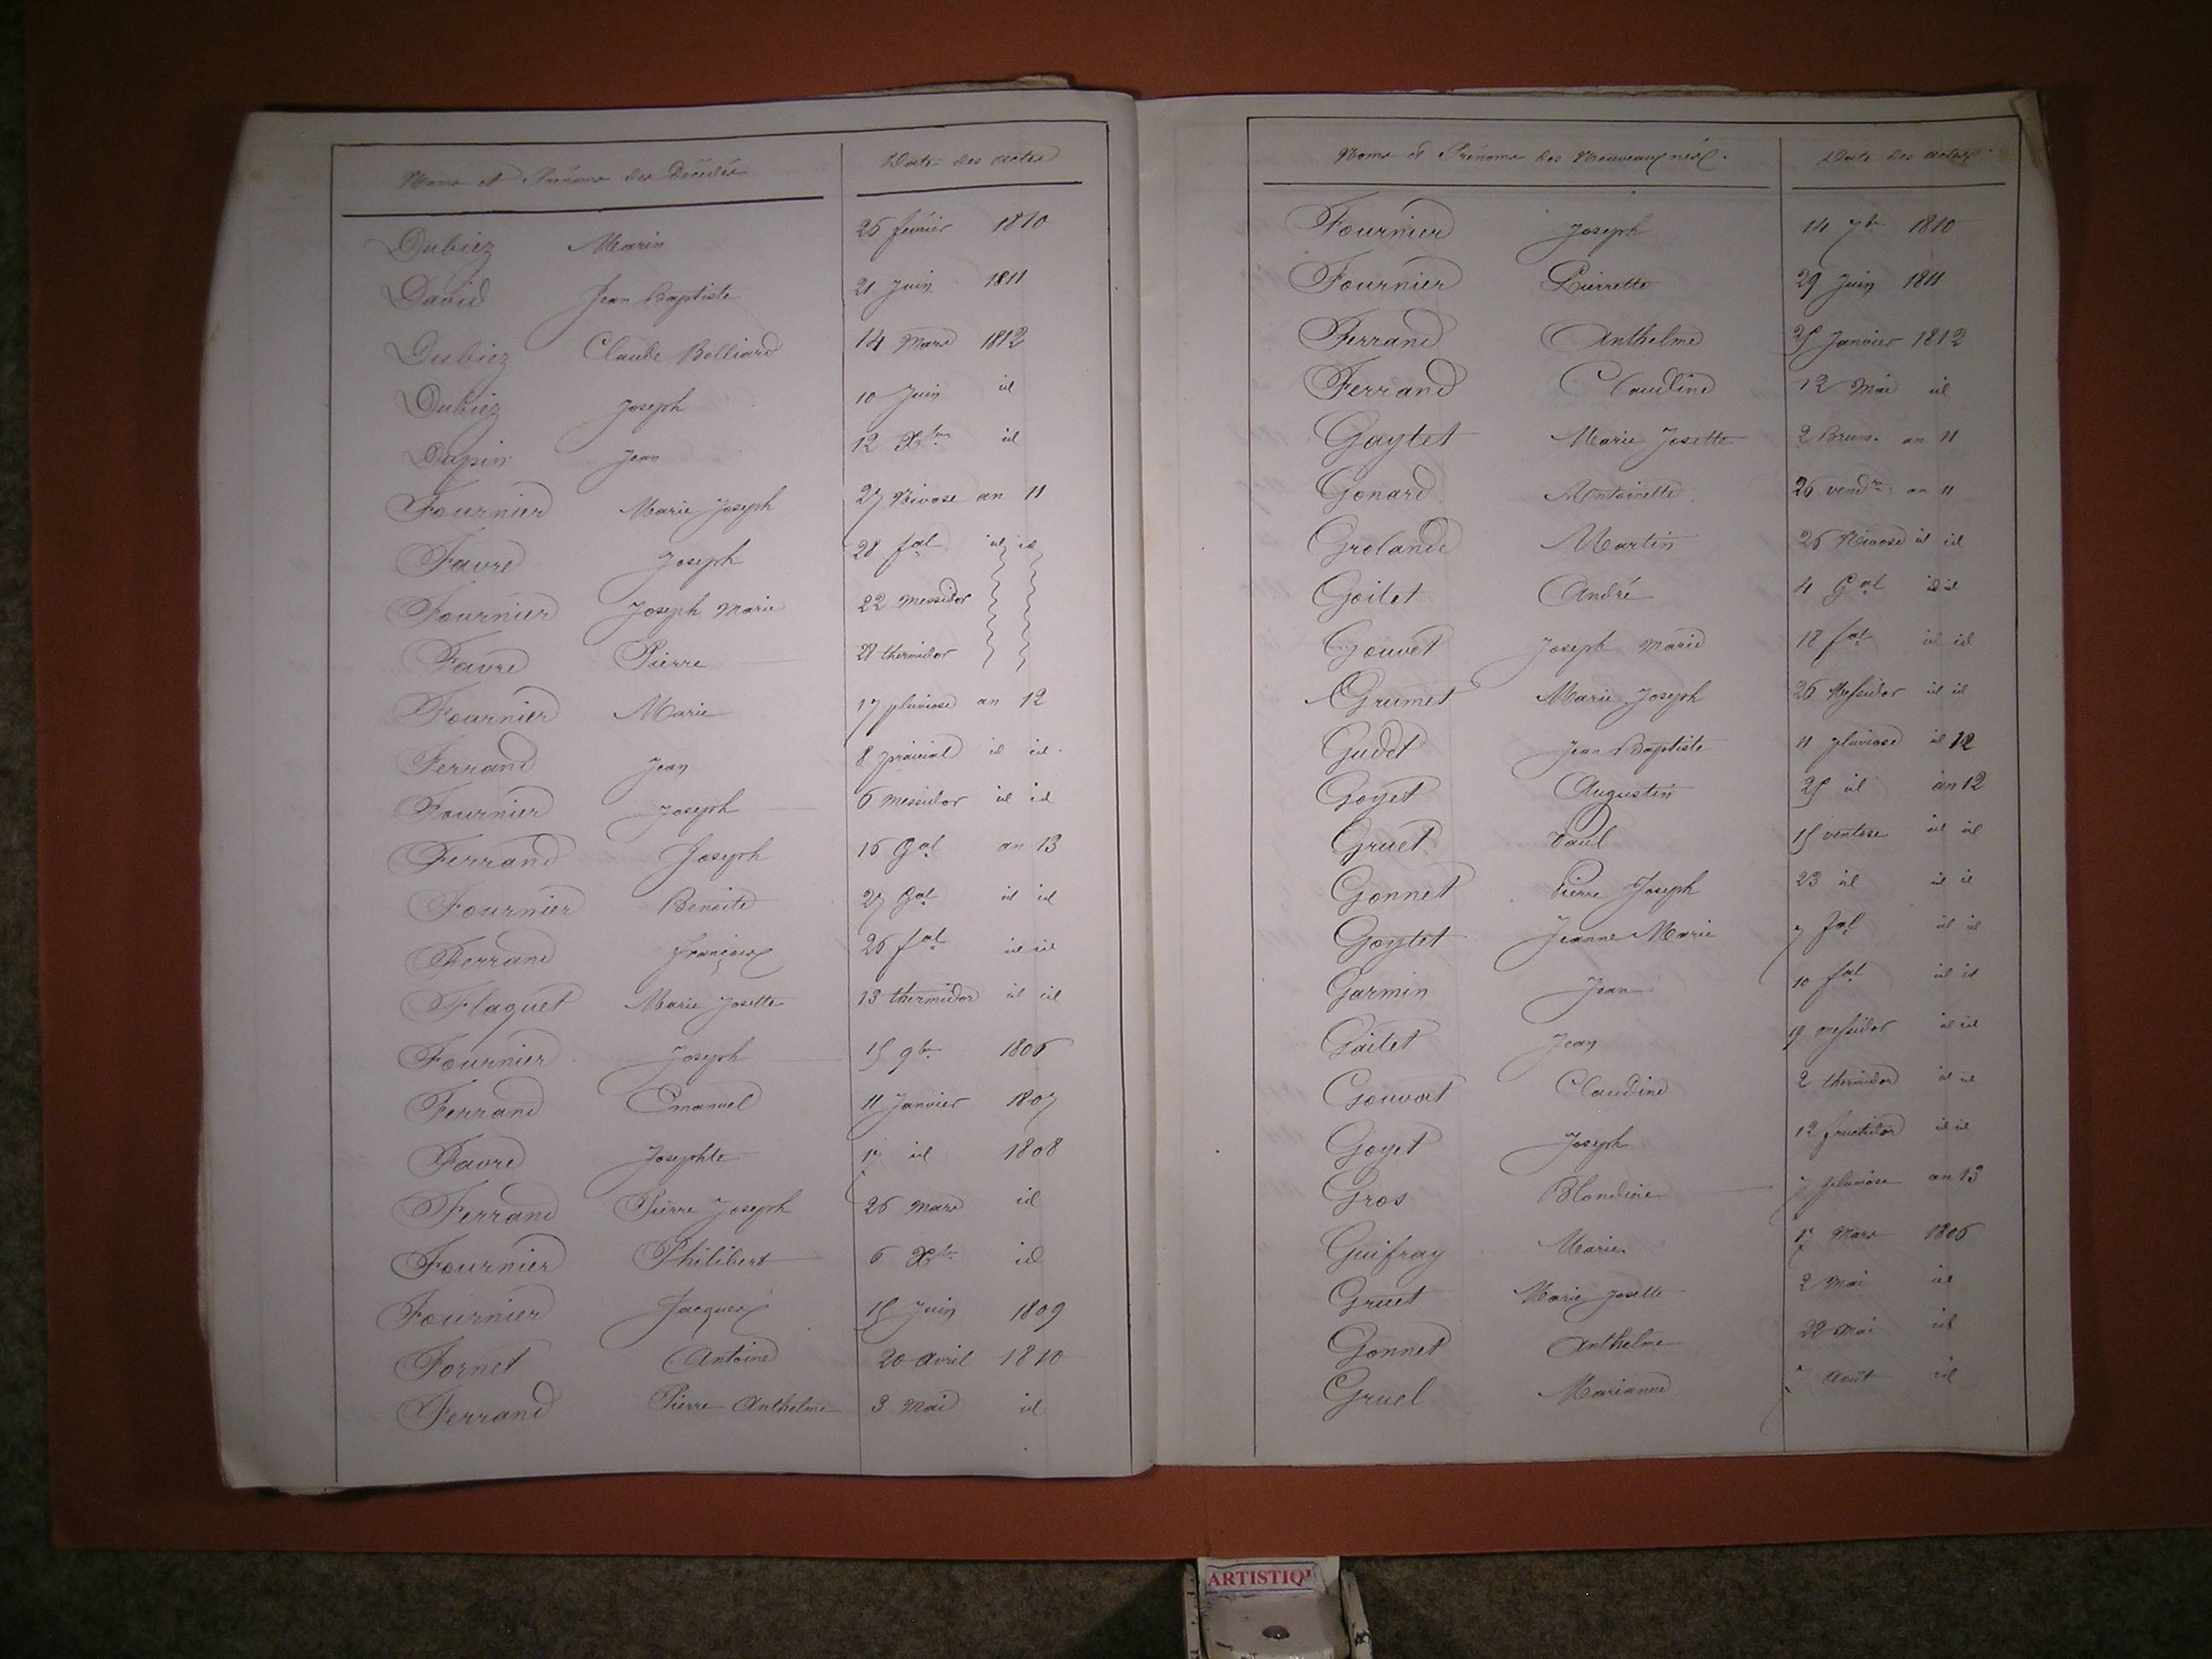 Noms et Prénoms des Décédés Date des actes
Dubiez Marin 26 février 1810
David Jean Baptiste 21 Juin 1811
Dubiez Claude Bolliard 14 Mars 1812
Dubiez Joseph 10 Juin id
Dupin Jean 12 Xbre id
Fournier Marie Joseph 27 Nivose an 11
Favre Joseph 28 fal id id
Fournier Joseph Marie 22 messidor
Favre Pierre 28 thermidor
Fournier Marie 17 pluviose an 12
Ferrand Jean 8 prairial id id
Fournier Joseph 6 messidor id id
Ferrand Joseph 16 Gal an 13
Fournier Benoite 27 Gal id id
Ferrand françoix 26 fal id id
Flaquet Marie Josette 13 thermidor id id
Fournier Joseph 15 9bre 1806
Ferrand Emanuel 11 Janvier 1807
Favre Josephte 17 id 1808
Ferrand Pierre Joseph 26 Mars id
Fournier Philibert 6 Xbre id
Fournier Jacques 15 Juin 1809
Fornet Antoine 20 avril 1810
Ferrand Pierre Anthelme 3 Mai id
Noms et Prénoms des Nouveaux nés. Date des actes
Fournier Joseph 14 7bre 1810
Fournier Pierrette 29 Juin 1811
Ferrand Anthelme 25 Janvier 1812
Ferrand Claudine 12 Mai id
Goytet Marie Josette 2 Brum. an 11
Gonard Antoinette 26 vendre an 11
Groland Martin 26 Nivose id id
Goitet André 4 Gal id id
Gouvet Joseph Marie 18 fal id id
Grumet Marie Joseph 26 Messidor id id
Gudet Jean Baptiste 11 pluviose id 12
Goyet Augustin 25 id an 12
Gruet Paul 15 ventose id id
Gonnet Pierre Joseph 23 id id id
Goytet Jeanne Marie 7 fal id id
Garmin Jean 10 fal id id
Goitet Jean 19 messidor id id
Gouvat Claudine 2 thermidor id id
Goyet Joseph 12 fructidor id id
Gros Blondine 7 pluviose an 13
Guifray Marie 17 Mars 1806
Gruet Marie Josette 2 Mai id
Gonnet Anthelme 22 Mai id
Gruel Marianne 7 Août id
ARTISTIQ